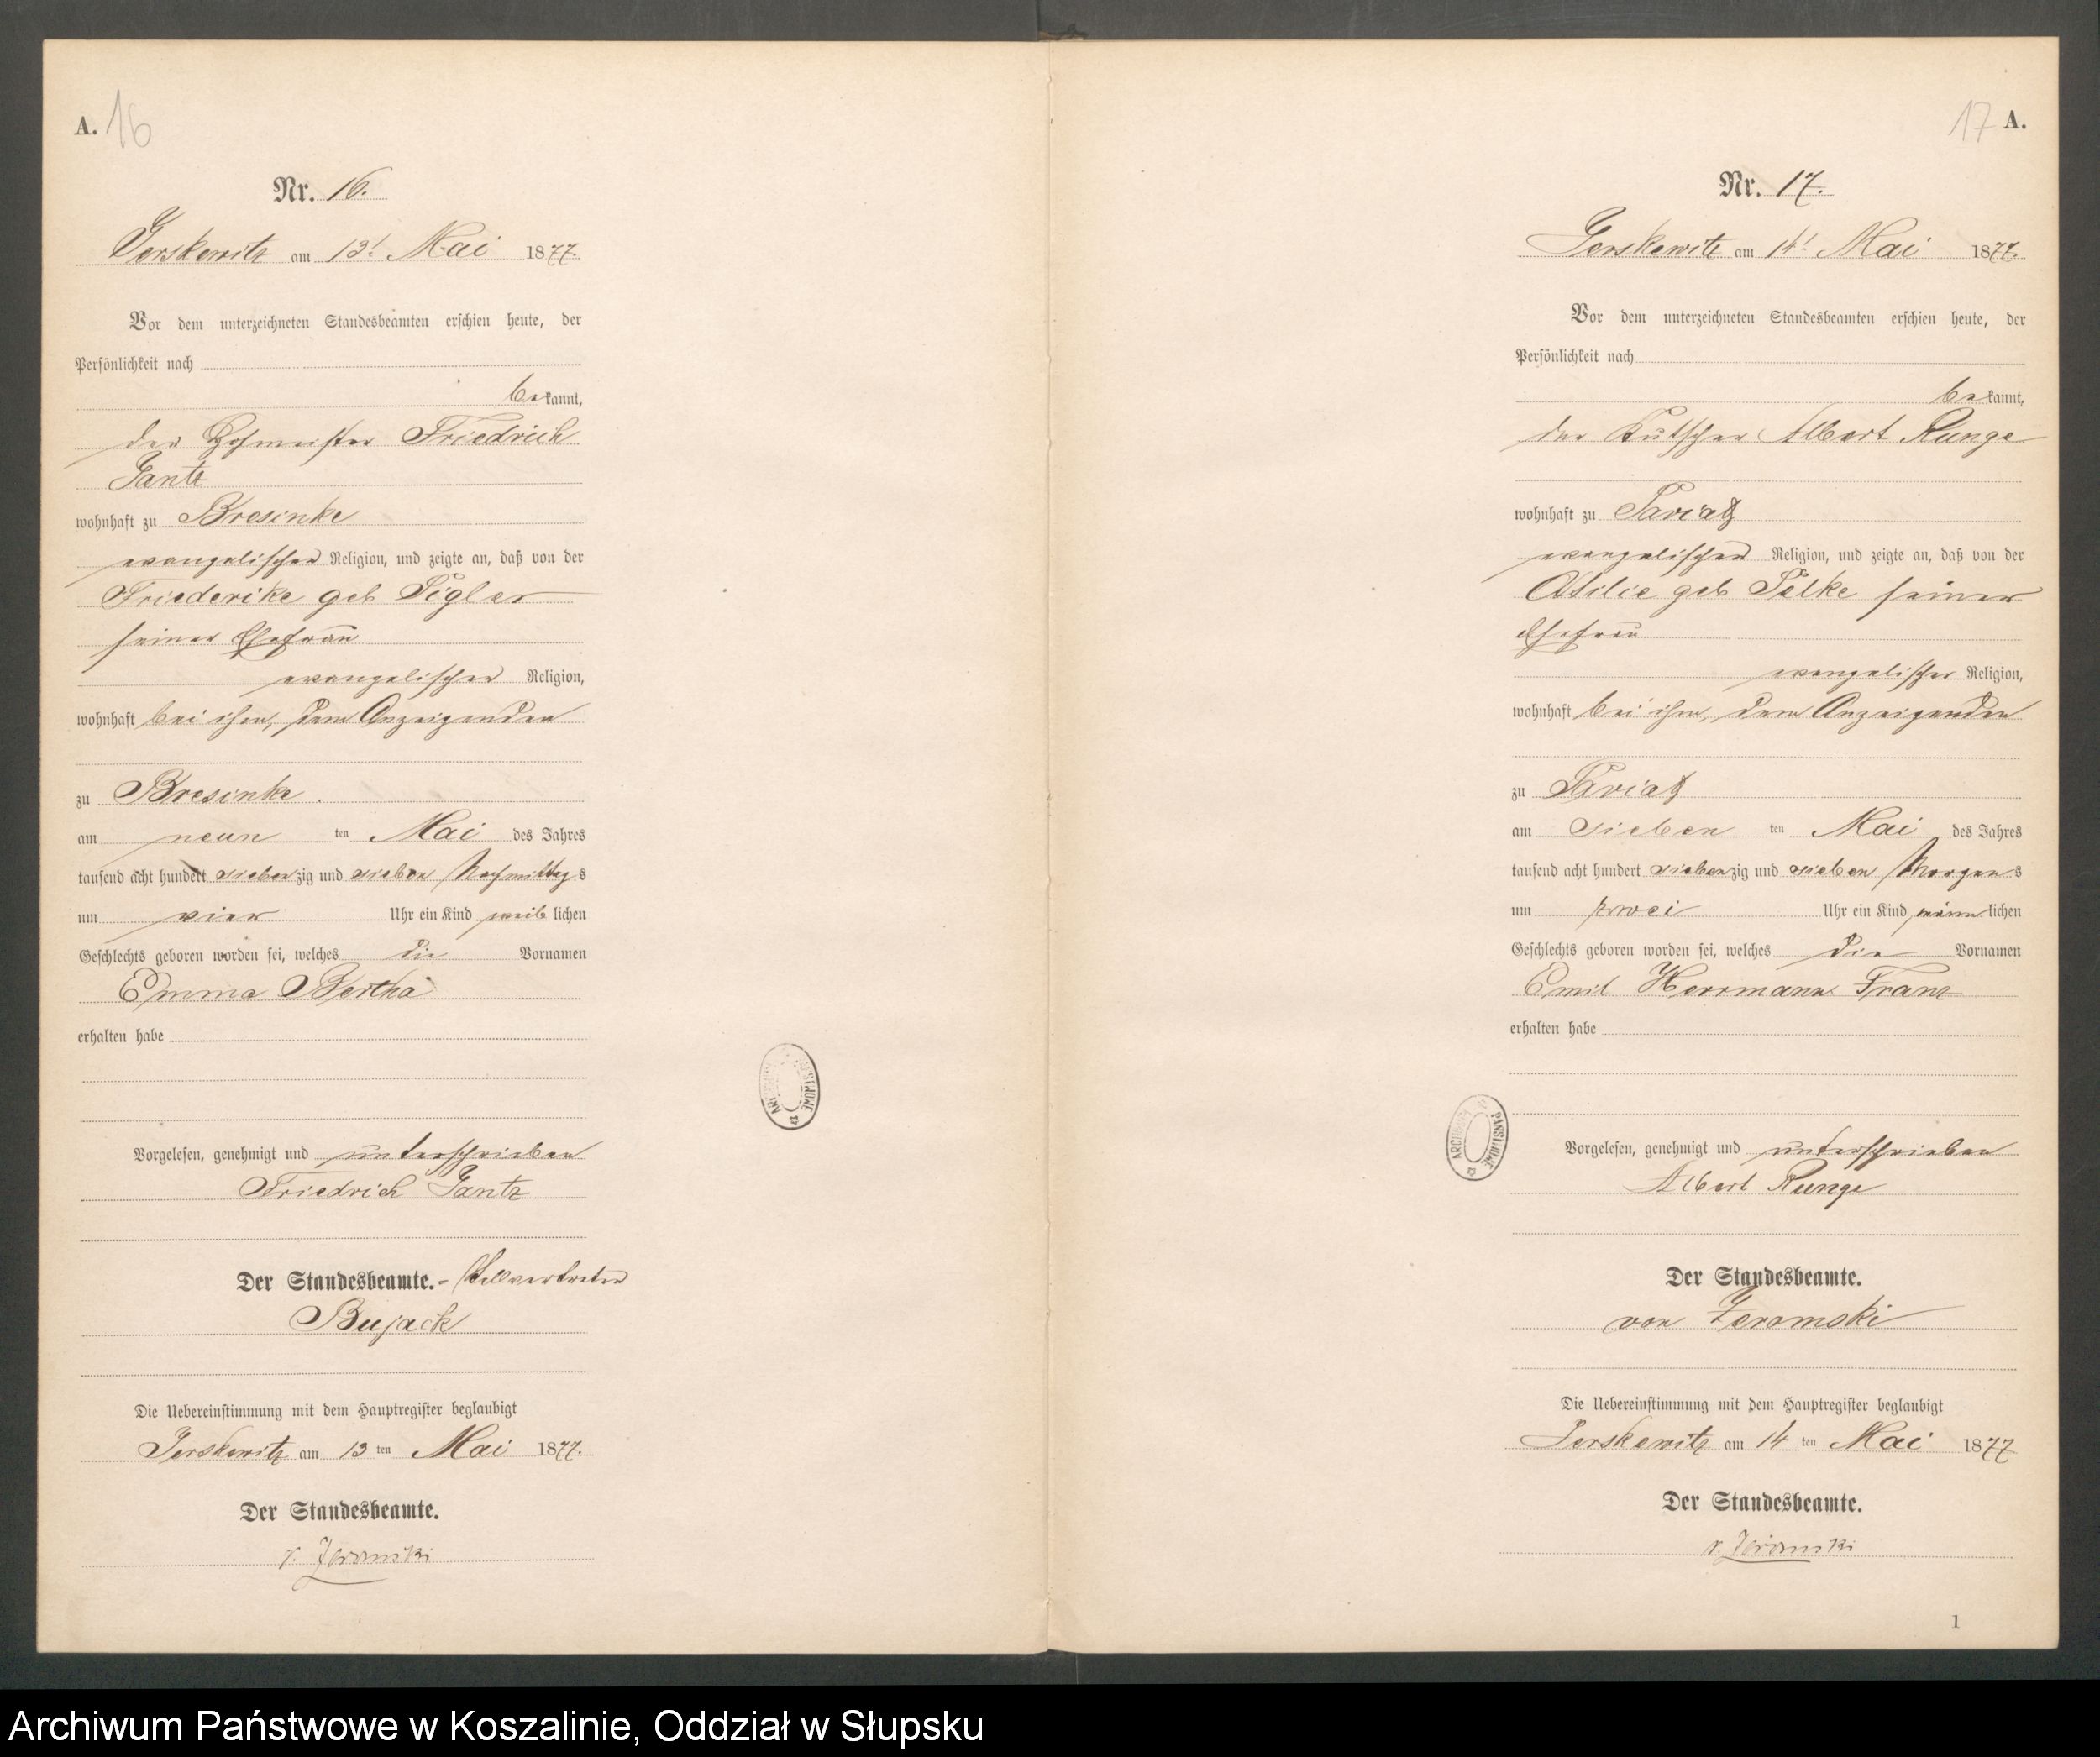 A. 16
Nr. 16.
Jerskewitz am 13t Mai 1877.
Vor dem unterzeichneten Standesbeamten erschien heute, der
Persönlichkeit nach
bekannt,
der Hofmeister Friedrich
Jantz
wohnhaft zu Bresinke
evangelischer Religion, und zeigte an, daß von der
Friederike geb Sigler
seiner Ehefrau
evangelischer Religion,
wohnhaft bei ihm, dem Anzeigenden
zu Bresinke.
am neun ten Mai des Jahres
tausend acht hundert siebenzig und sieben Nachmittags
um vier Uhr ein Kind weiblichen
Geschlechts geboren worden sei, welches die Vornamen
Emma Bertha
erhalten habe
Vorgelesen, genehmigt und unterschrieben
Friedrich Jantz
Der Standesbeamte.- Stellvertreter
Bujack
Die Uebereinstimmung mit dem Hauptregister beglaubigt
Jerskewitz am 13 ten Mai 1877.
Der Standesbeamte.
v. Zeromski
ARCHIWUM PAŃSTWOWE
17 A.
Nr. 17.
Jerskewitz am 14t Mai 1877.
Vor dem unterzeichneten Standesbeamten erschien heute, der
Persönlichkeit nach
bekannt,
der Kutscher Albert Runge
wohnhaft zu
evangelischer Religion, und zeigte an, daß von der
Ottilie geb Selke seiner
Ehefrau
evangelischer Religion,
wohnhaft bei ihm, dem Anzeigenden
zu
am sieben ten Mai des Jahres
tausend acht hundert siebenzig und sieben Morgens
um zwei Uhr ein Kind männlichen
Geschlechts geboren worden sei, welches die Vornamen
Emil Herrmann Franz
erhalten habe
Vorgelesen, genehmigt und unterschrieben
Albert Runge
Der Standesbeamte.
von Zeromski
Die Uebereinstimmung mit dem Hauptregister beglaubigt
Jerskewitz am 14 ten Mai 1877
Der Standesbeamte.
v. Zeromski
ARCHIWUM PAŃSTWOWE
1
Archiwum Państwowe w Koszalinie, Oddział w Słupsku